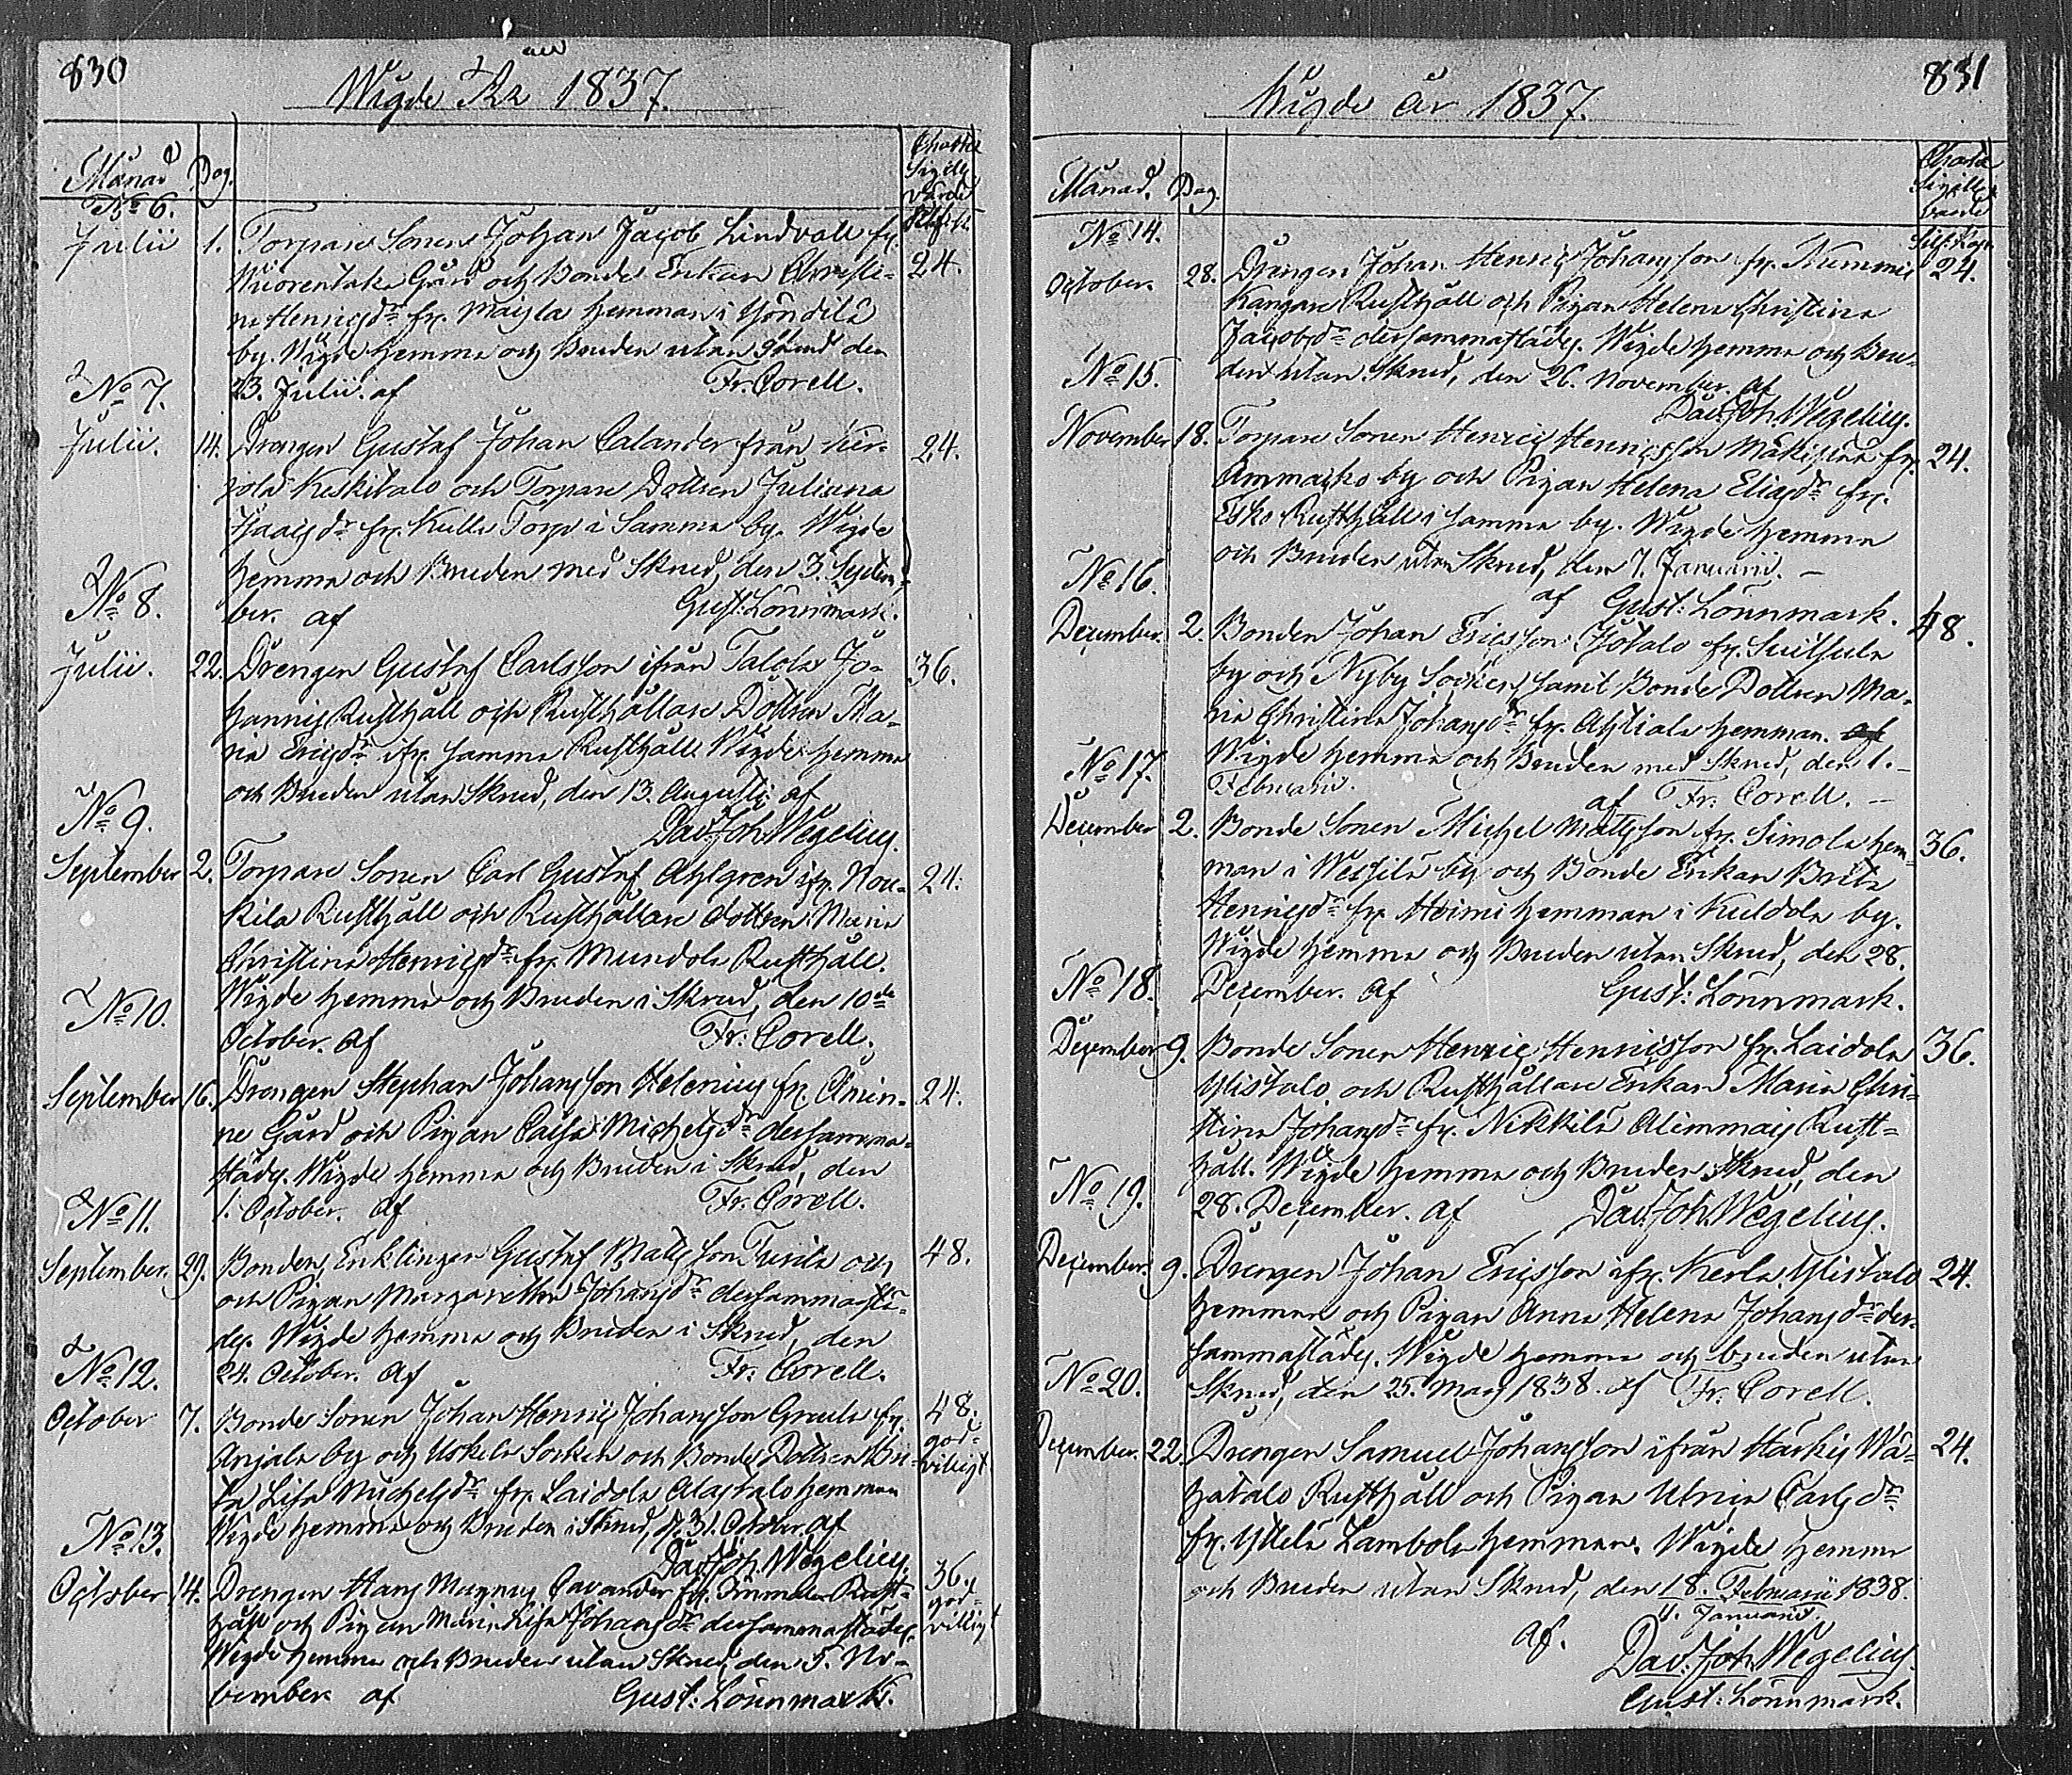 830
Wigde År 1837.
Månad Dag. Charta Sigillæ värde
No 6. Silf: K.
Julii 1. Torpare Sonen Johan Jacob Lindvall fr. 24.
Wuorentaka Gård och Bonde Enkan Christi-
na Henricsdr fr. Maisla hemman i Yöndilä
by. Wigde hemma och Bruden utan skrud den
23. Julii. af Fr. Corell.
No 7.
Julii. 14. Drengen Gustaf Johan Calander från Ker- 24.
jola Keskitalo och Torpare Dottren Juliana
Isaacsdr fr. Kulla Torp i Samma by. Wigde
hemma och Bruden med Skrud, den 3. Septem-
ber. af Gust: Lönnmark.
No 8.
Julii. 22. Drengen Gustaf Carlsson ifrån Talola Jo- 36.
hannis Rusthåll och Rusthållare Dottren Ma-
ria Ericsdr ifr. samma Rusthåll. Wigde hemma
och Bruden utan Skrud, den 13. Augusti af
Dav. Joh. Wegelius.
No 9.
September 2. Torpare Sonen Carl Gustaf Ahlgren ifr. Nou- 24.
kila Rusthåll och Rusthållare dottren Maria
Christina Henricsdr fr. Mundola Rusthåll.
Wigde hemma och Bruden i Skrud, den 10de
October. af Fr: Corell.
No 10.
September 16. Drengen Stephan Johansson Helenius fr. Åmin- 24.
ne Gård och Pigan Caisa Michelsdr dersamma-
städs. Wigde hemma och Bruden i Skrud, den
1. October. af Fr. Corell.
No 11.
September. 29. Bonden, Enklingen Gustaf Matsson Turila och 48.
och Pigan Margaretha Johansdr dersammastä-
des. Wigde hemma och Bruden i Skrud, den
24. October. af Fr: Corell.
No 12.
October 7. Bonde Sonen Johan Henric Johansson Graula fr. 48. god-
Anjala by och Uskela Socken och Bonde Dottren Bri- villigt
ta Lisa Michelsdr fr. Laidola Alastalo hemman
Wigde hemma och Bruden i Skrud, d. 31. October. af
Dav. Joh. Wegelius.
No 13.
October 14. Drengen Hans Magnus Cavander fr. Immala Rust- 36. god-
håll och Pigan Maria Lisa Johansdr dersammastädes. villigt
Wigde hemma och Bruden utan Skrud, den 5. No-
vember. af Gust: Lönnmark.
831
Wigde år 1837.
Månad. Dag. Charta Sigillæ värde
No 14. Silf: Kop.
October. 28. Drengen Johan Henric Johansson fr. Nummis 24.
Kangare Rusthåll och Pigan Helena Christina
Jacobsdr dersammastädes. Wigde hemma och Bru-
den utan Skrud, den 26. November. af
Dav. Joh. Wegelius.
No 15.
November 18. Torpare Sonen Henric Henricsson Mäkispää fr. 24.
Ammaisko by och Pigan Helena Eliasdr fr.
Esko Rusthåll i samma by. Wigde hemma
och Bruden utan Skrud, den 7. Januarii. –
af Gust: Lönnmark.
No 16.
December. 2. Bonden Johan Ericsson Ylötalo fr. Suitsula 48.
by och Nyby Socken samt Bonde Dottren Ma-
ria Christina Johansdr fr. Ahtiala hemman. af
Wigde hemma och Bruden med Skrud, den 1. –
Februarii. af Fr: Corell. –
No 17.
December 2. Bonde Sonen Michel Mattsson fr. Simola hem- 36.
man i Wessilä by och Bonde Enkan Brita
Henricsdr fr. Heimi hemman i Kuldola by.
Wigde hemma och Bruden utan Skrud, den 28.
December. af Gust: Lönnmark.
No 18.
December 9. Bonde Sonen Henric Henricsson fr. Laidola 36.
Ylistalo, och Rusthållare Enkan Maria Chri-
stina Johansdr fr. Nikkilä Alimmais Rust-
håll. Wigde hemma och Bruden i Skrud, den
28. December. af Dav. Joh. Wegelius.
No 19.
December. 9. Drengen Johan Ericsson ifr. Kerla Ylistalo 24.
hemman och Pigan Anna Helena Johansdr der-
sammastädes. Wigde hemma och bruden utan
Skrud, den 25. Mars 1838. af Fr. Corell.
No 20.
December. 22. Drengen Samuel Johansson ifrån Härkis Wä- 24.
hätalo Rusthåll och Pigan Ulrica Carlsdr
fr. Yttelä Lambola hemman. Wigde hemma
och Bruden utan Skrud, den 18. Februarii 1838.
11. Januarii.
af. Dav. Joh. Wegelius.
Gust: Lönnmark.